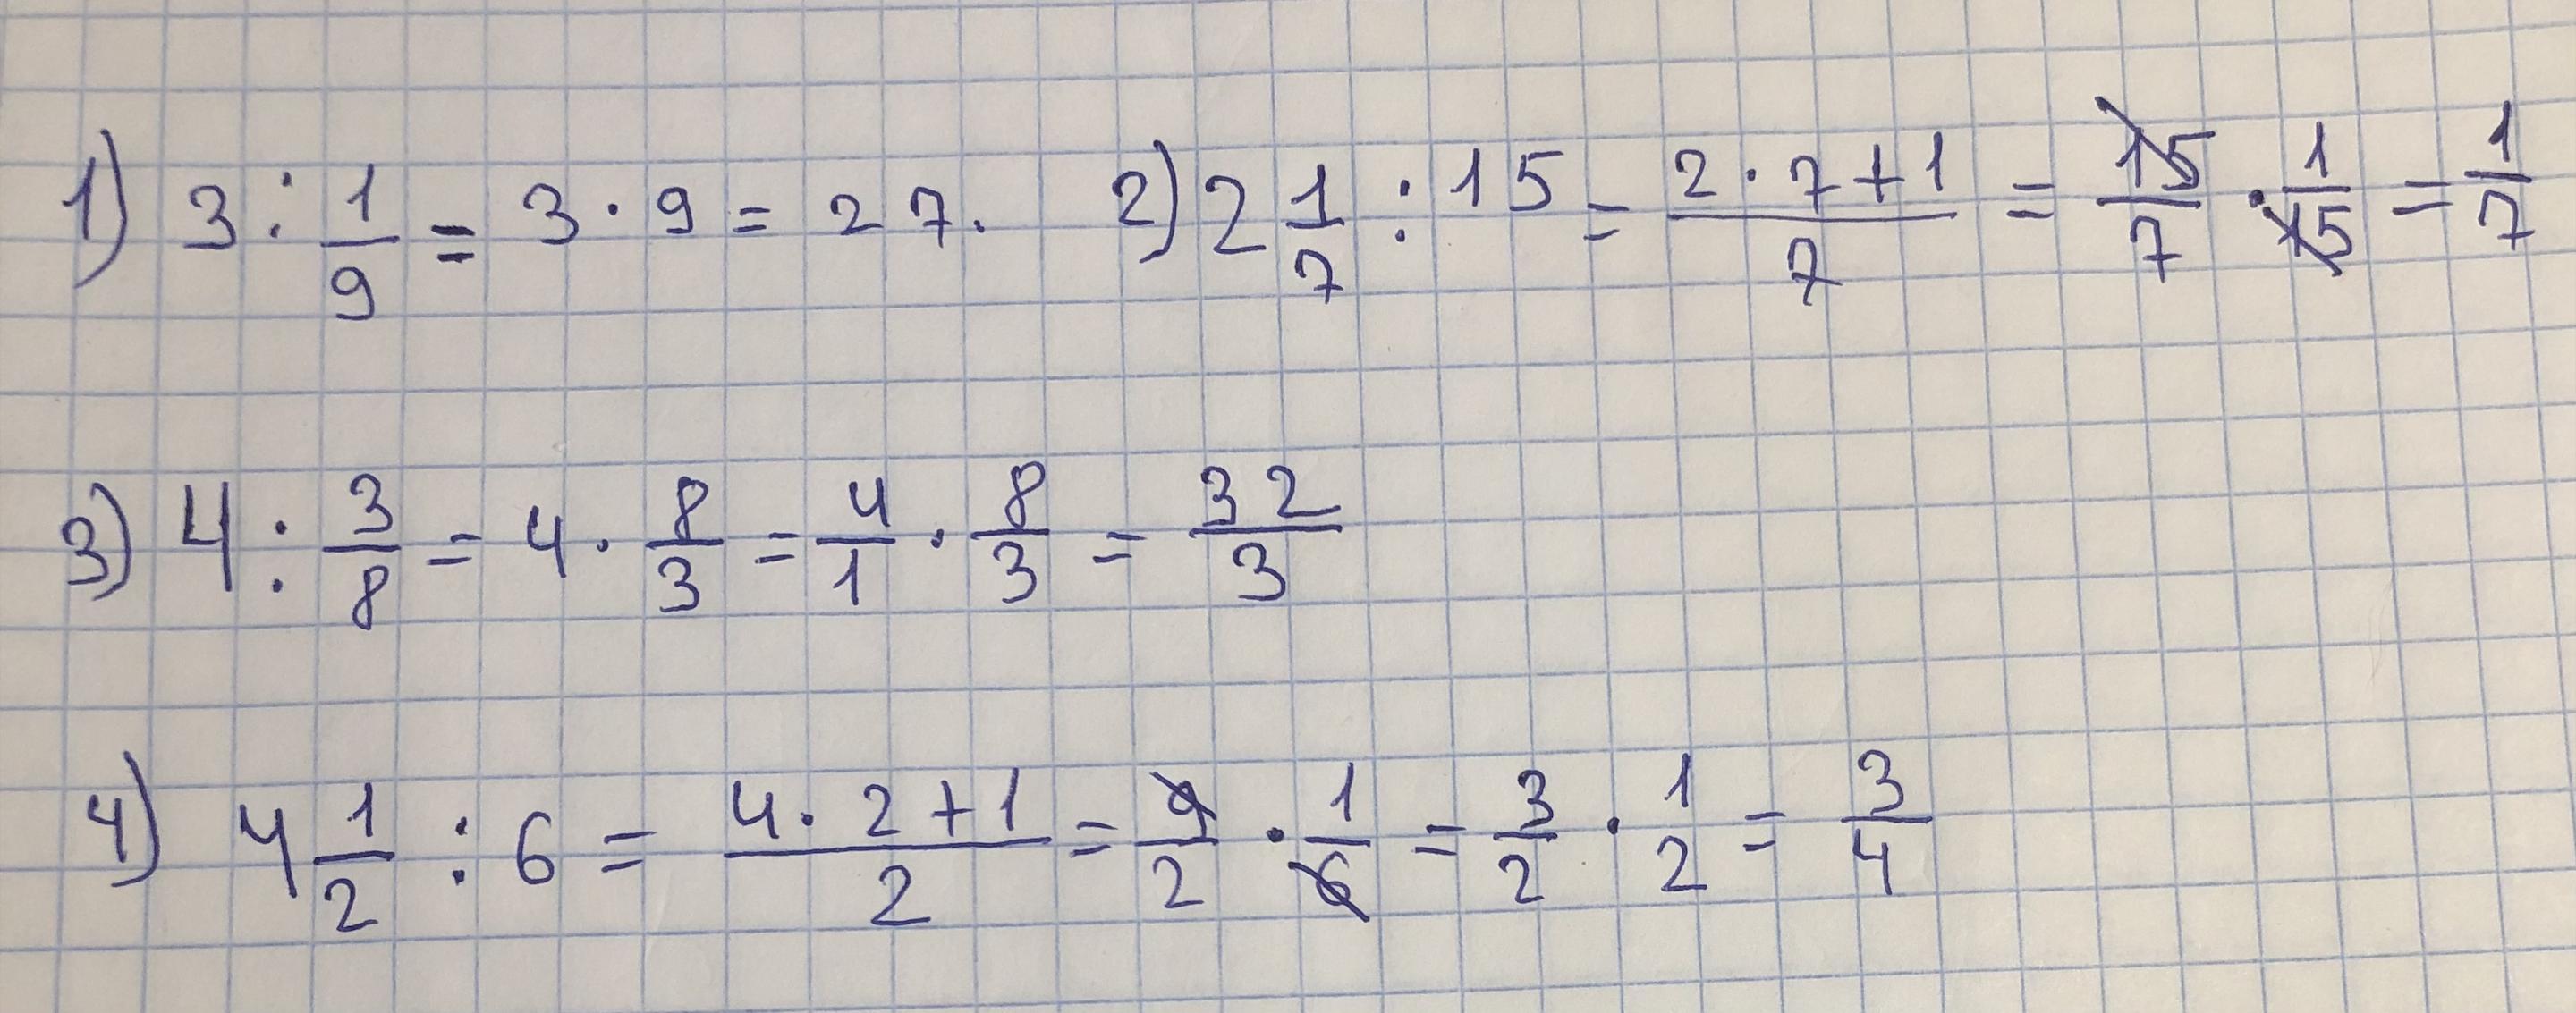 1) 3 : 1/9 = 3 · 9 = 27. 2) 2 1/7 : 15 = (2 · 7 + 1)/7 = 15/7 · 1/15 = 1/7
3) 4 : 3/8 = 4 · 8/3 = 4/1 · 8/3 = 32/3
4) 4 1/2 : 6 = (4 · 2 + 1)/2 = 9/2 · 1/6 = 3/2 · 1/2 = 3/4